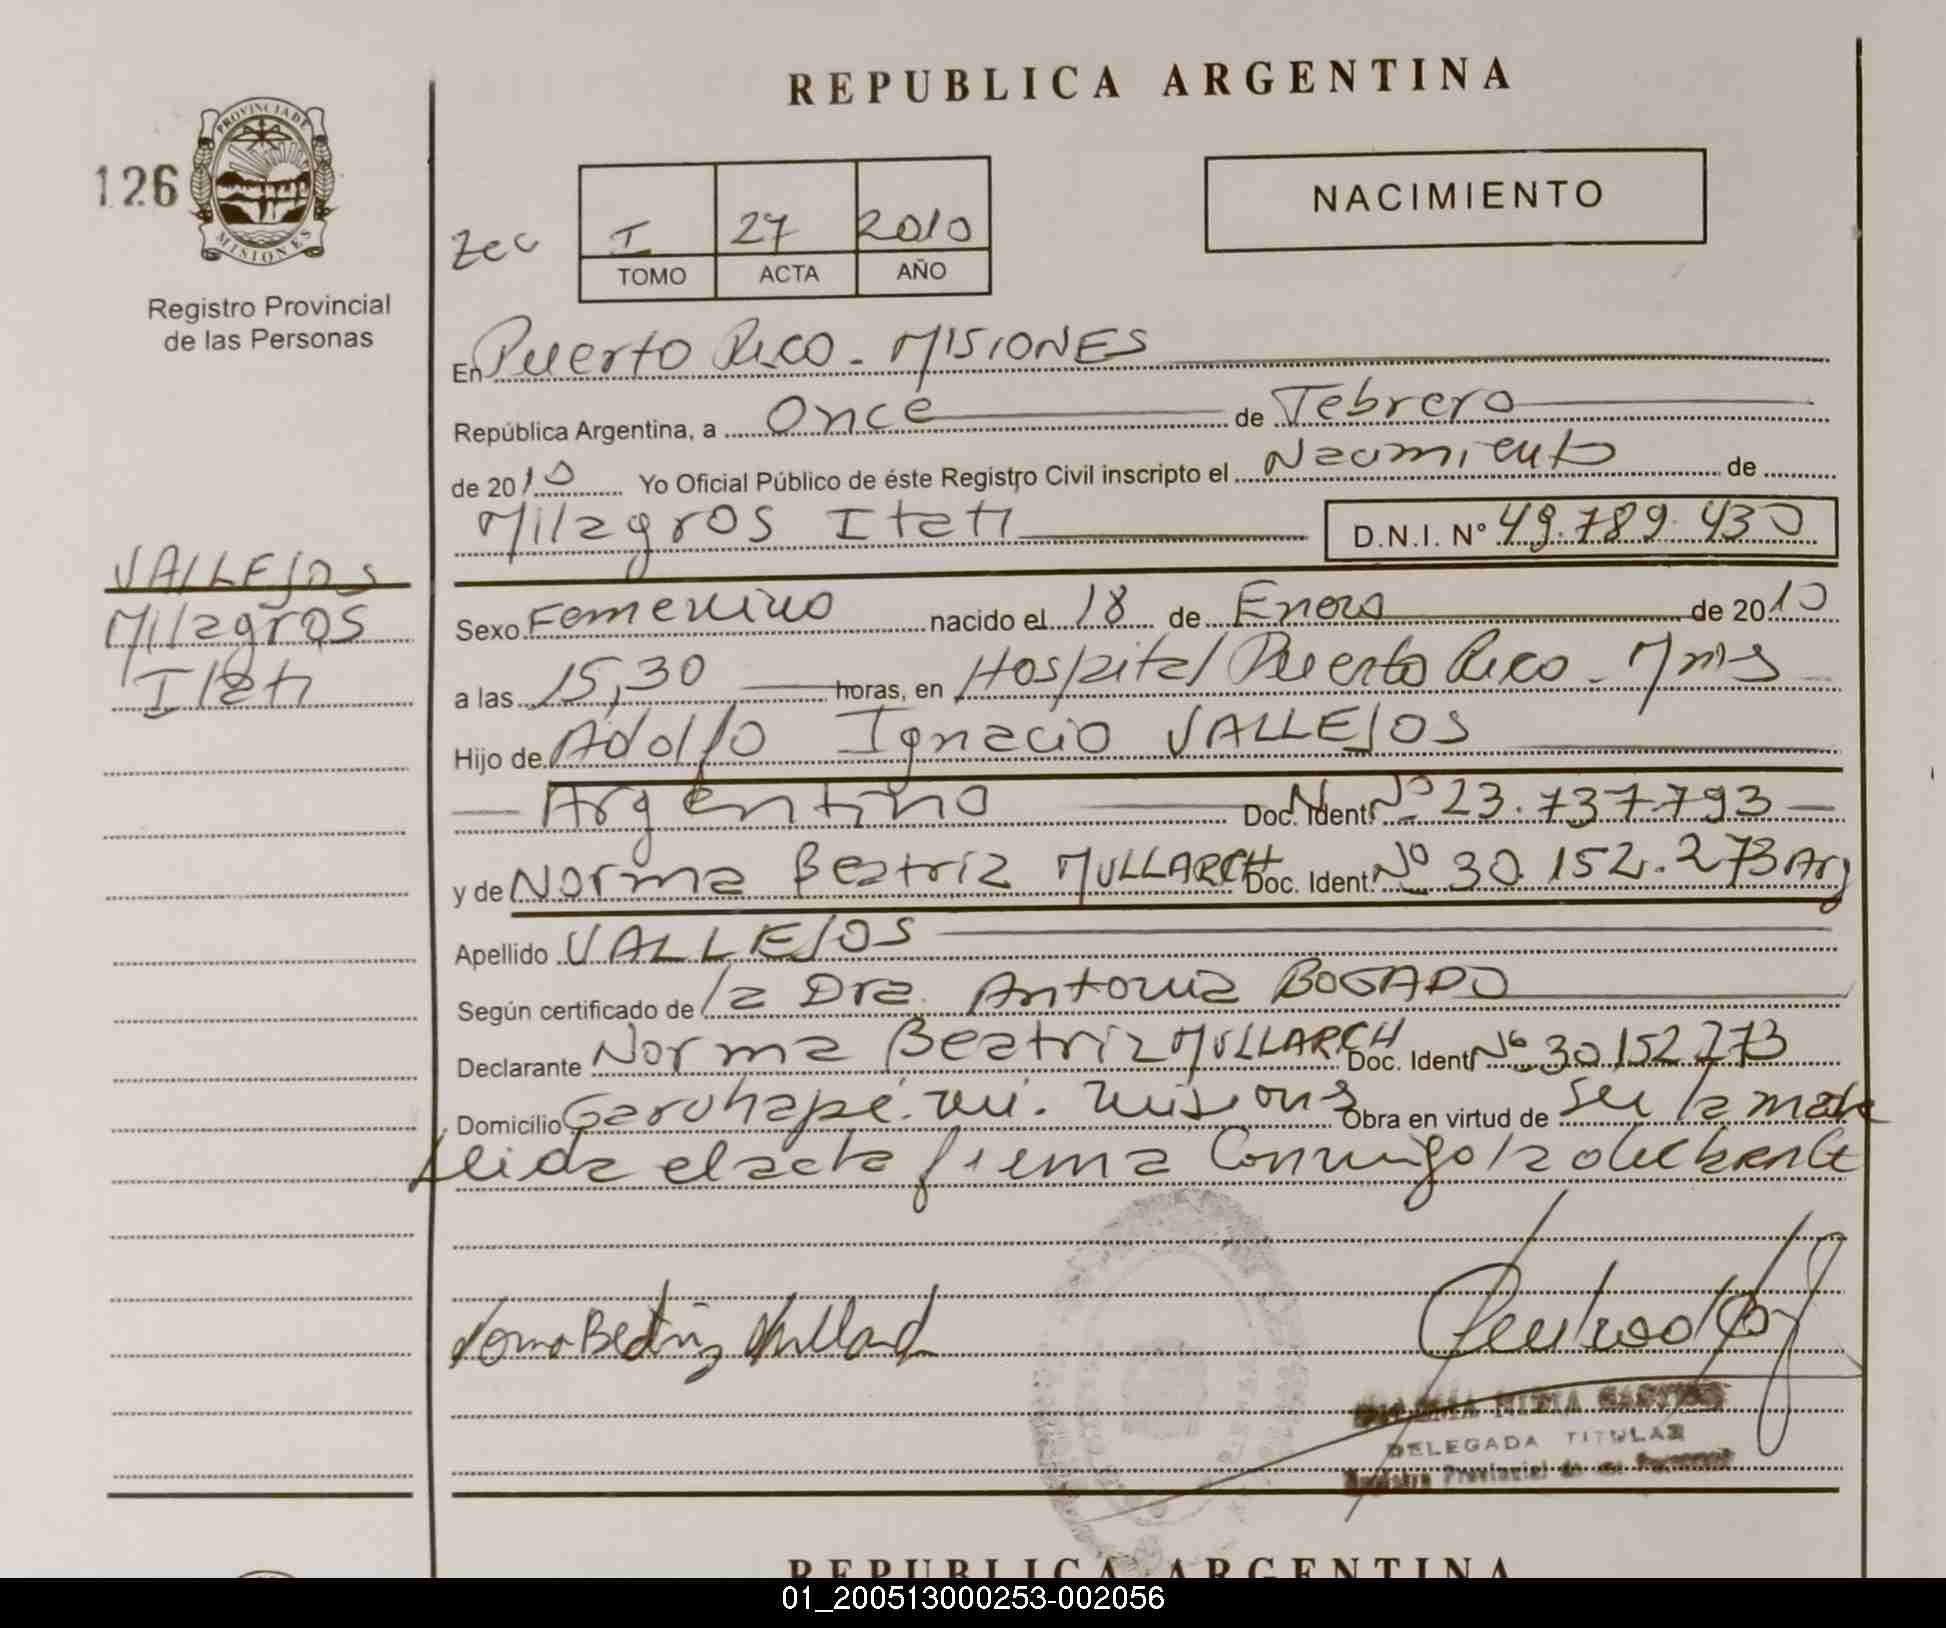 REPUBLICA ARGENTINA
PROVINCIA DE
MISIONES
126
NACIMIENTO
I 27 2010
TOMO ACTA AÑO
Registro Provincial
de las Personas
En Puerto Rico - MISIONES
República Argentina, a Once de Febrero
de 2010 Yo Oficial Público de éste Registro Civil inscripto el Nacimiento de
Milagros Itati D.N.I. Nº 49.789.430
VALLEJOS
Milagros
Itati
Sexo Femenino nacido el 18 de Enero de 2010
a las 15,30 horas, en Hospital Puerto Rico - Mnes
Hijo de Adolfo Ignacio VALLEJOS
Argentino Doc. Ident. Nº 23.737.793
y de Norma Beatriz MULLARCH Doc. Ident. Nº 30.152.273 Arg
Apellido VALLEJOS
Según certificado de la Dra. Antonia BOGADO
Declarante Norma Beatriz MULLARCH Doc. Ident. Nº 30.152.273
Domicilio Garuhapé. Misiones Obra en virtud de ser la madre
leida el acta firma conmigo la declarante
Norma Beatriz Mullarch
DELEGADA TITULAR
Registro Provincial de las Personas
REPUBLICA ARGENTINA
01_200513000253-002056